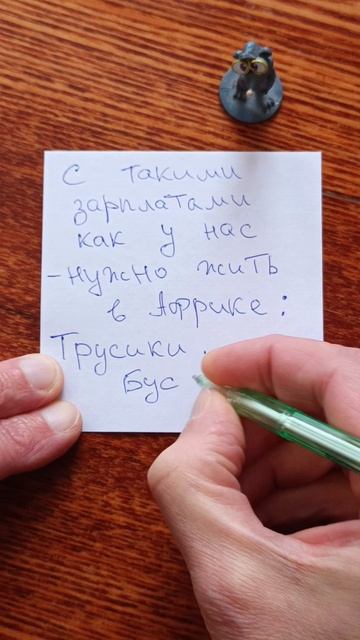 С такими
зарплатами
как у нас
- нужно жить
в Африке:
Трусики,
Бус